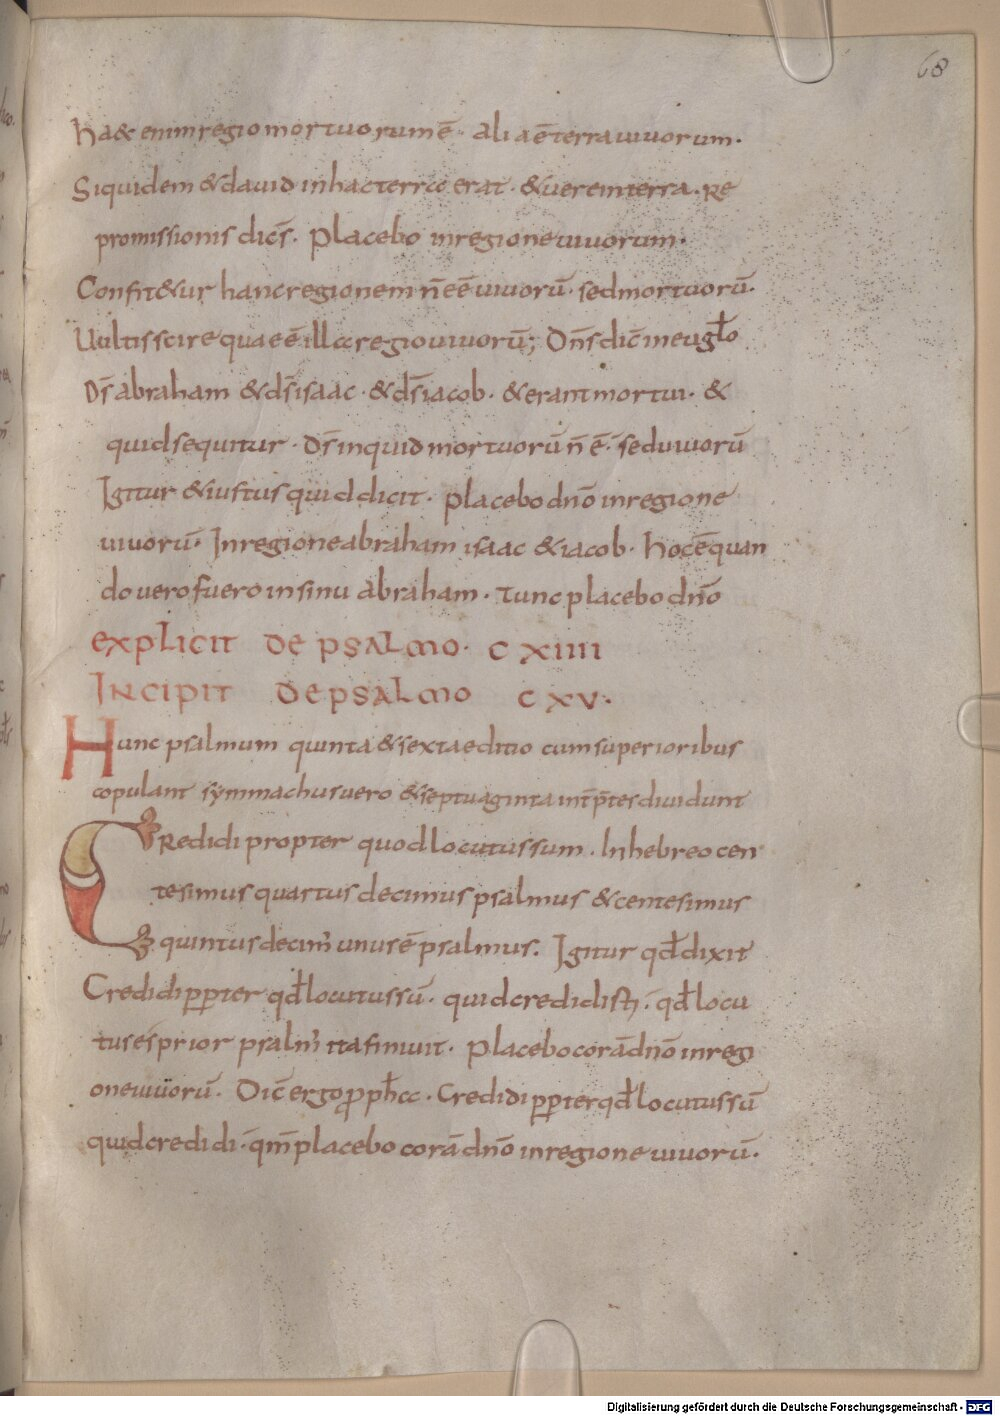 68
Haec enim regio mortuorum ē· alia ē terra uiuorum·
Siquidem & dauid in hac terra erat· & uerein terra· re
promissionis dic̄s· Placebo in regione uiuorum·
Confit&ur hanc regionem n̄ eē uiuorū· sed mortuorū·
Uultis scire quae ē illa regio uiuorū; Dn̄s dic̄ in eugl̄o
Ds̄ abraham & ds̄ isaac· & ds̄ iacob· & erant mortui· &
quid sequitur· Ds̄ inquid mortuorū n̄ ē· sed uiuorū
Igitur & iustus quid dicit· placebo dn̄o in regione
uiuorū· In regione abraham isaac & iacob· Hoc ē quan
do uero fuero in sinu abraham· Tunc placebo dn̄o
EXPLICIT DE PSALMO· CXIIII
INCIPIT DE PSALMO CXV·
Hunc psalmum quinta & sexta editio cum superioribus
copulant symmachus uero & septuaginta int̄p̄tes diuidunt
Credidi propter quod locutus sum· In hebreo cen
tesimus quartus decimus psalmus & centesimus
quintus decim' unus ē psalmus. Igitur qđ dixit
Credidi ꝑꝑter qđ locutus sū· quid credidisti· qđ locu
tus es prior psalm' ita finiuit· Placebo corā dn̄o in regi
one uiuorū· Dic̄ ergo ꝓph̄a· Credidi ꝑꝑter qđ locutus sū
quid credidi· qm̄ placebo corā dn̄o in regione uiuorū·
Digitalisierung gefördert durch die Deutsche Forschungsgemeinschaft - DFG